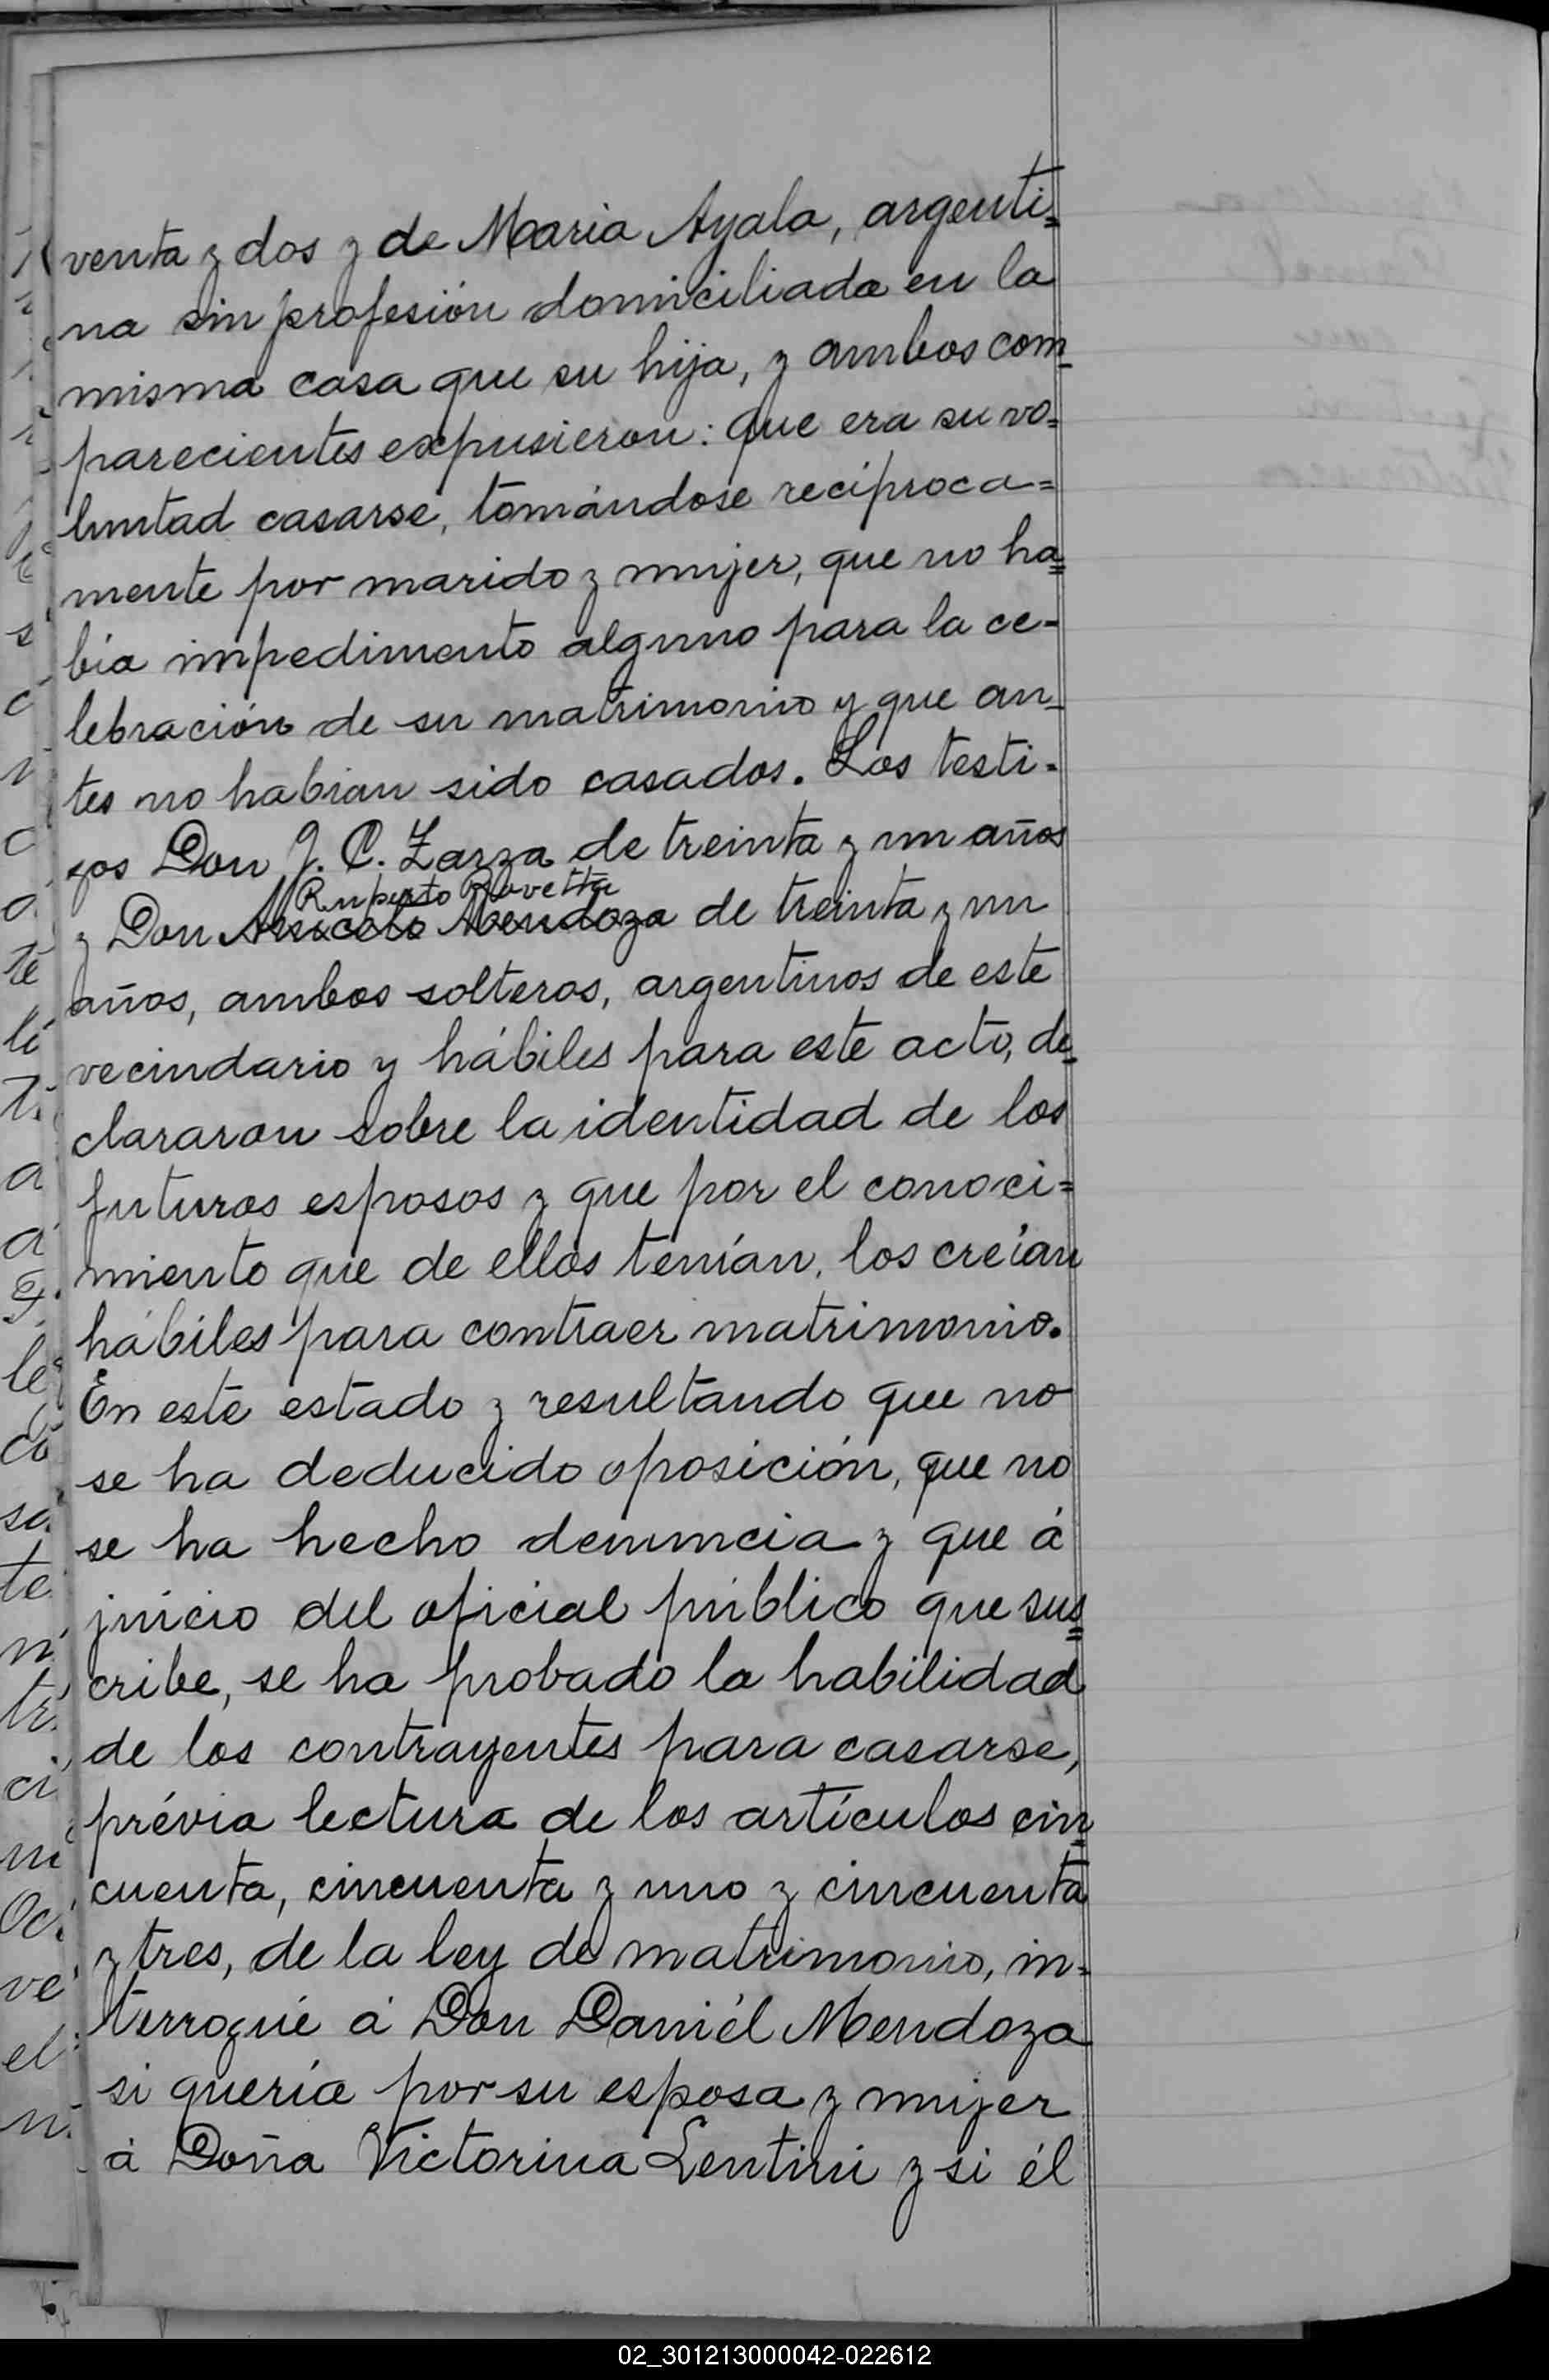 venta y dos y de Maria Ayala, argenti=
na sin profesión domiciliada en la
misma casa que su hija, y ambos com_
parecientes expusieron: que era su vo=
luntad casarse, tomándose recíproca=
mente por marido y mujer, que no ha=
bía impedimento alguno para la ce-
lebración de su matrimonio y que an_
tes no habian sido casados. Los testi-
gos Don J. C. Zarza de treinta y un años
Ruperto Rovetta
y Don Aniceto Mendoza de treinta y un
años, ambos solteros, argentinos de este
vecindario y hábiles para este acto, de_
clararon sobre la identidad de los
futuros esposos y que por el conoci=
miento que de ellos tenían, los creían
hábiles para contraer matrimonio.
En este estado y resultando que no
se ha deducido oposición, que no
se ha hecho denuncia y que á
juicio del oficial público que sus=
cribe, se ha probado la habilidad
de los contrayentes para casarse,
prévia lectura de los artículos cin=
cuenta, cincuenta y uno y cincuenta
y tres, de la ley de matrimonio, in=
terrogué á Don Daniél Mendoza
si quería por su esposa y mujer
á Doña Victorina Lentini y si él
02_301213000042-022612